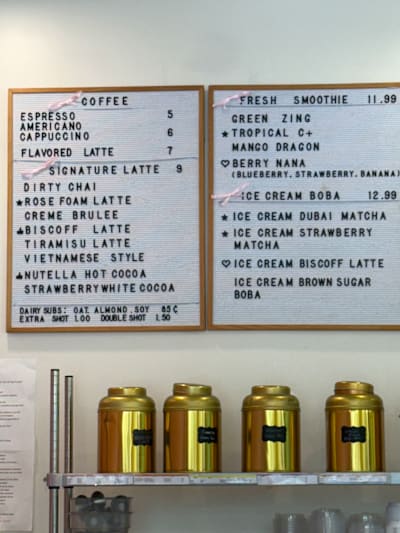 COFFEE
ESPRESSO 5
AMERICANO
CAPPUCCINO 6
FLAVORED LATTE 7
SIGNATURE LATTE 9
DIRTY CHAI
★ROSE FOAM LATTE
CREME BRULEE
BISCOFF LATTE
TIRAMISU LATTE
VIETNAMESE STYLE
NUTELLA HOT COCOA
STRAWBERRY WHITE COCOA
DAIRY SUBS: OAT. ALMOND. SOY 85¢
EXTRA SHOT 1.00 DOUBLE SHOT 1.50
FRESH SMOOTHIE 11.99
GREEN ZING
★TROPICAL C+
MANGO DRAGON
♡BERRY NANA
(BLUEBERRY. STRAWBERRY. BANANA)
ICE CREAM BOBA 12.99
★ICE CREAM DUBAI MATCHA
★ICE CREAM STRAWBERRY
MATCHA
♡ICE CREAM BISCOFF LATTE
ICE CREAM BROWN SUGAR
BOBA